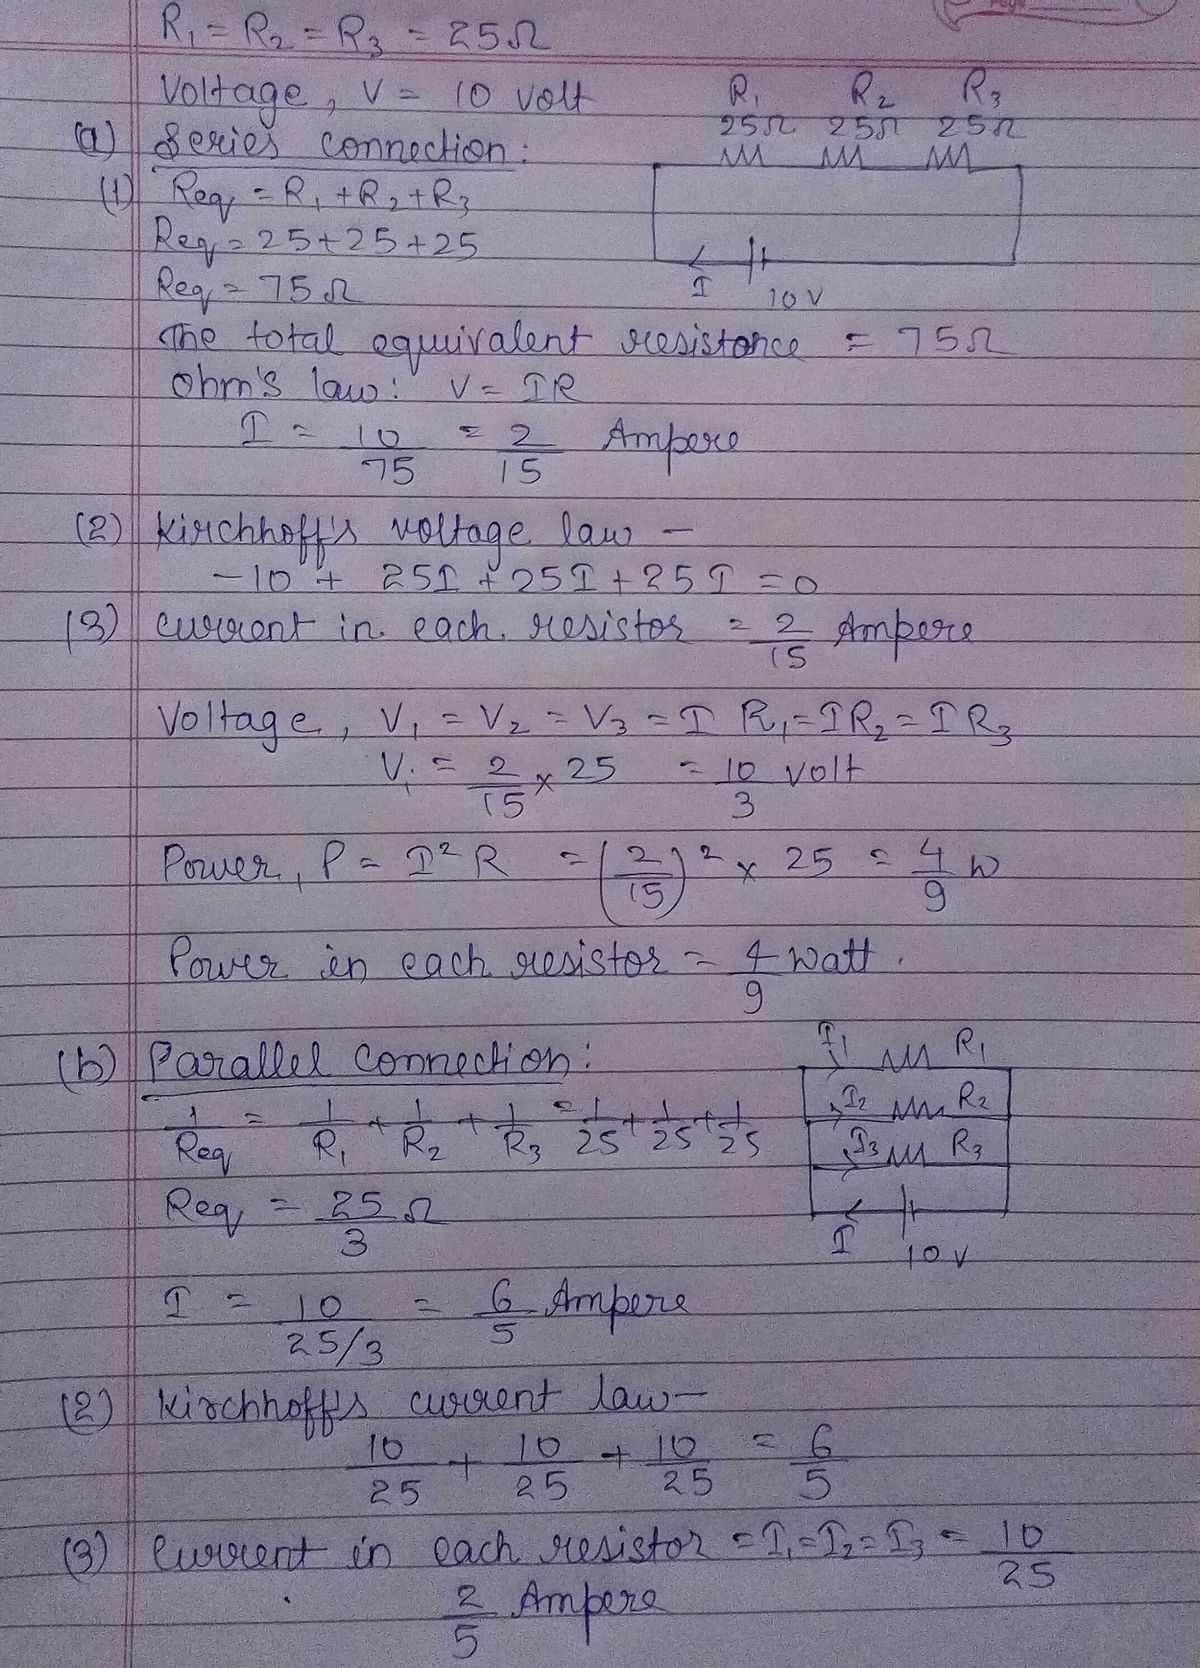 R₁ = R₂ = R₃ = 25Ω
Voltage, V = 10 volt
R₁ R₂ R₃
25Ω 25Ω 25Ω
(a) Series connection:
(1) Req = R₁ + R₂ + R₃
Req = 25+25+25
Req = 75Ω
I 10V
The total equivalent resistance = 75Ω
Ohm's law: V = IR
I = 10/75 = 2/15 Ampere
(2) Kirchhoff's voltage law -
-10 + 25I + 25I + 25I = 0
(3) current in each resistor = 2/15 Ampere
Voltage, V₁ = V₂ = V₃ = I R₁ = IR₂ = I R₃
V₁ = 2/15 × 25 = 10/3 volt
Power, P = I² R = (2/15)² × 25 = 4/9 W
Power in each resistor = 4/9 watt.
(b) Parallel connection:
1/Req = 1/R₁ + 1/R₂ + 1/R₃ = 1/25 + 1/25 + 1/25
I₁ R₁
I₂ R₂
I₃ R₃
I 10V
Req = 25/3 Ω
I = 10/25/3 = 6/5 Ampere
(2) Kirchhoff's current law -
10/25 + 10/25 + 10/25 = 6/5
(3) Current in each resistor = I₁ = I₂ = I₃ = 10/25
2/5 Ampere